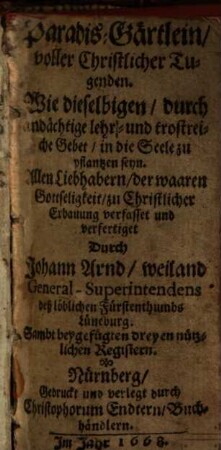 Paradis-Gärtlein/
voller Christlicher Tu-
genden.
Wie dieselbigen/ durch
andächtige lehr- und trostrei-
che Gebet/ in die Seele zu
pflantzen seyn.
Allen Liebhabern/ der waaren
Gottseligkeit/ zu Christlicher
Erbauung verfasset und
verfertiget
Durch
Johann Arnd/ weiland
General-Superintendens
deß löblichen Fürstenthumbs
Lüneburg.
Sambt beygefügten dreyen nütz-
lichen Registern.
Nürnberg/
Gedruckt und verlegt durch
Christophorum Endtern/ Buch-
händlern.
Im Jahr 1668.